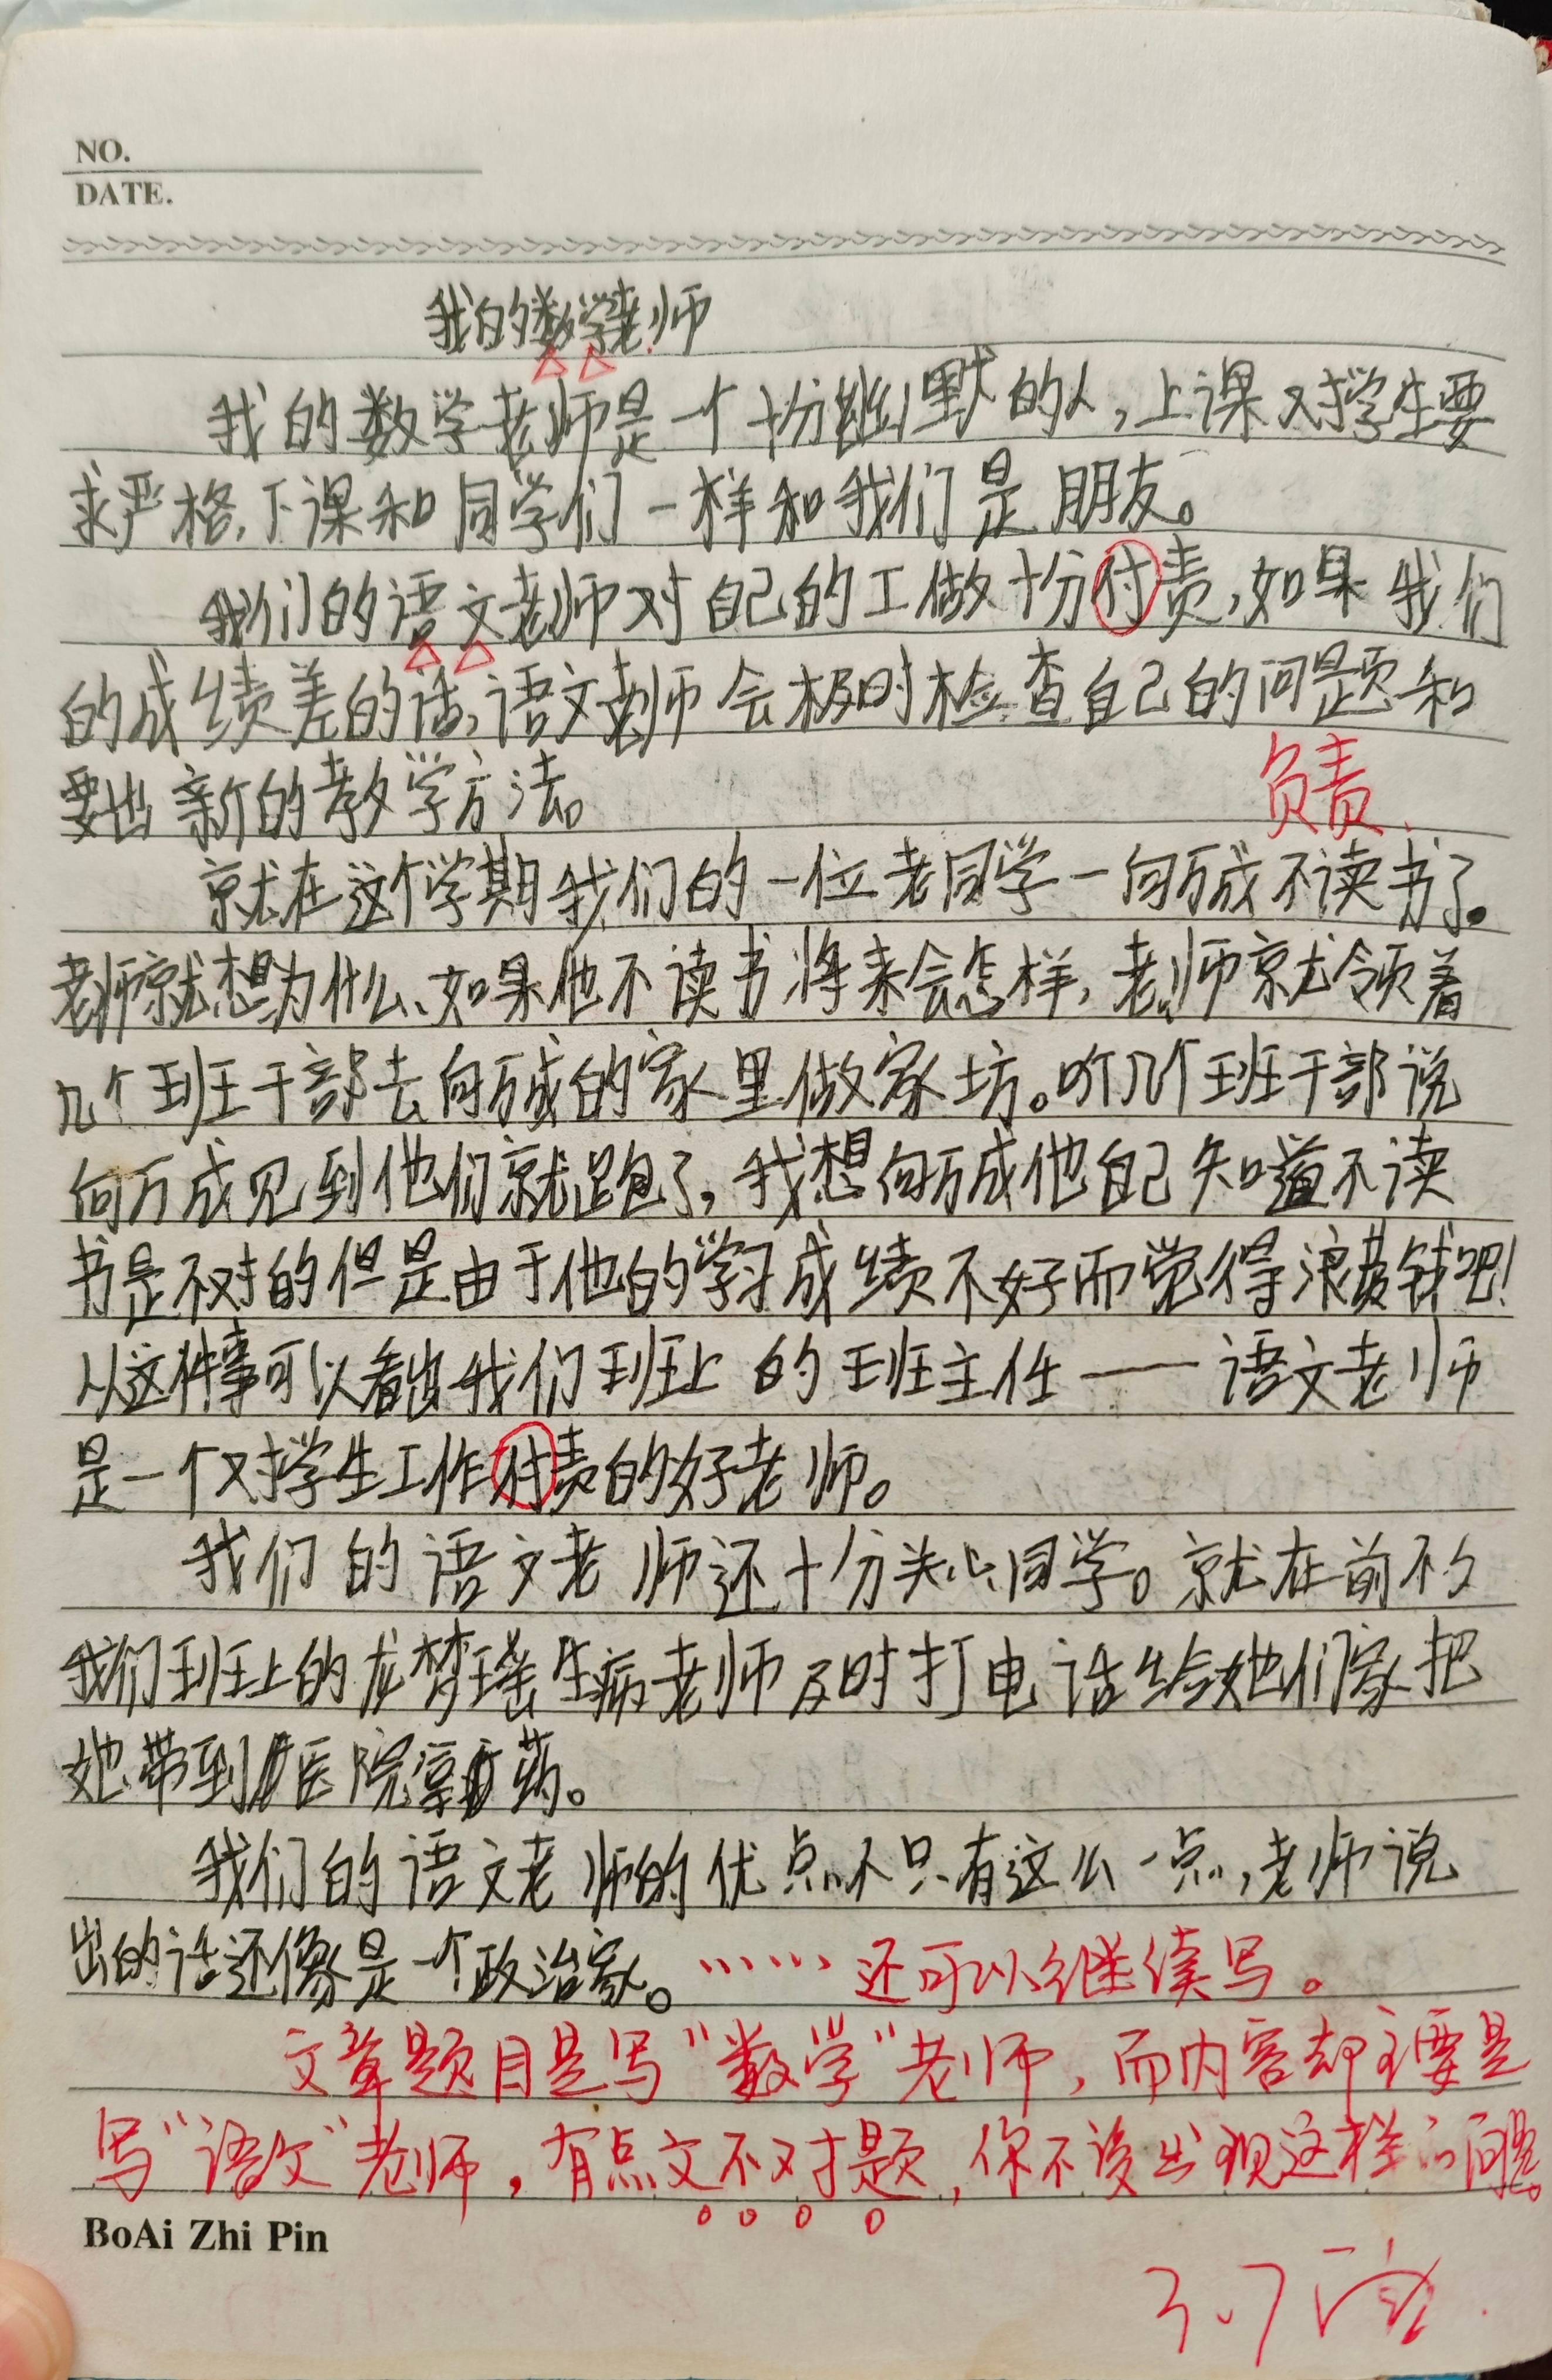 NO.
DATE.
我的数学老师
我的数学老师是一个十分幽默的人,上课对学生要
求严格,下课和同学们一样和我们是朋友。
我们的语文老师对自己的工做十分付责,如果我们
的成绩差的话,语文老师会极时检查自己的问题和
要出新的教学方法。
负责
就在这个学期我们的一位老同学一向万成不读书了。
老师就想为什么、如果他不读书将来会怎样,老师就领着
几个班干部去向万成的家里做家坊。听几个班干部说
向万成见到他们就跑了,我想向万成他自己知道不读
书是不对的但是由于他的学习成绩不好而觉得浪费钱吧!
从这件事可以看出我们班上的班主任——语文老师
是一个对学生工作付责的好老师。
我们的语文老师还十分关心同学。就在前不久
我们班上的龙梦瑶生病老师及时打电话给她们家把
她带到医院拿药。
我们的语文老师的优点不只有这么一点,老师说
出的话还像是一个政治家。……还可以继续写。
文章题目是写“数学”老师,而内容却主要是
写“语文”老师,有点文不对题,你不该出现这样的问题。
BoAi Zhi Pin
3.7